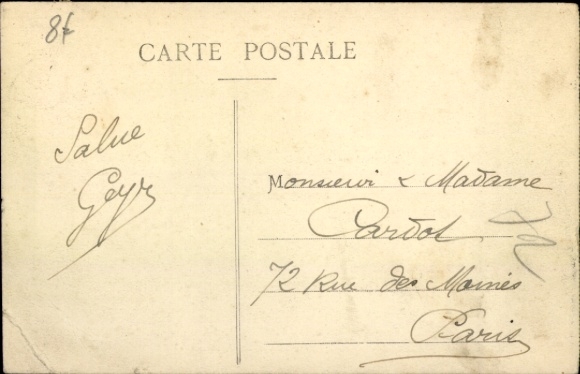 8f
CARTE POSTALE
Salue
Geyr
Monsieur & Madame
Cardot
72 Rue des Moines
Paris